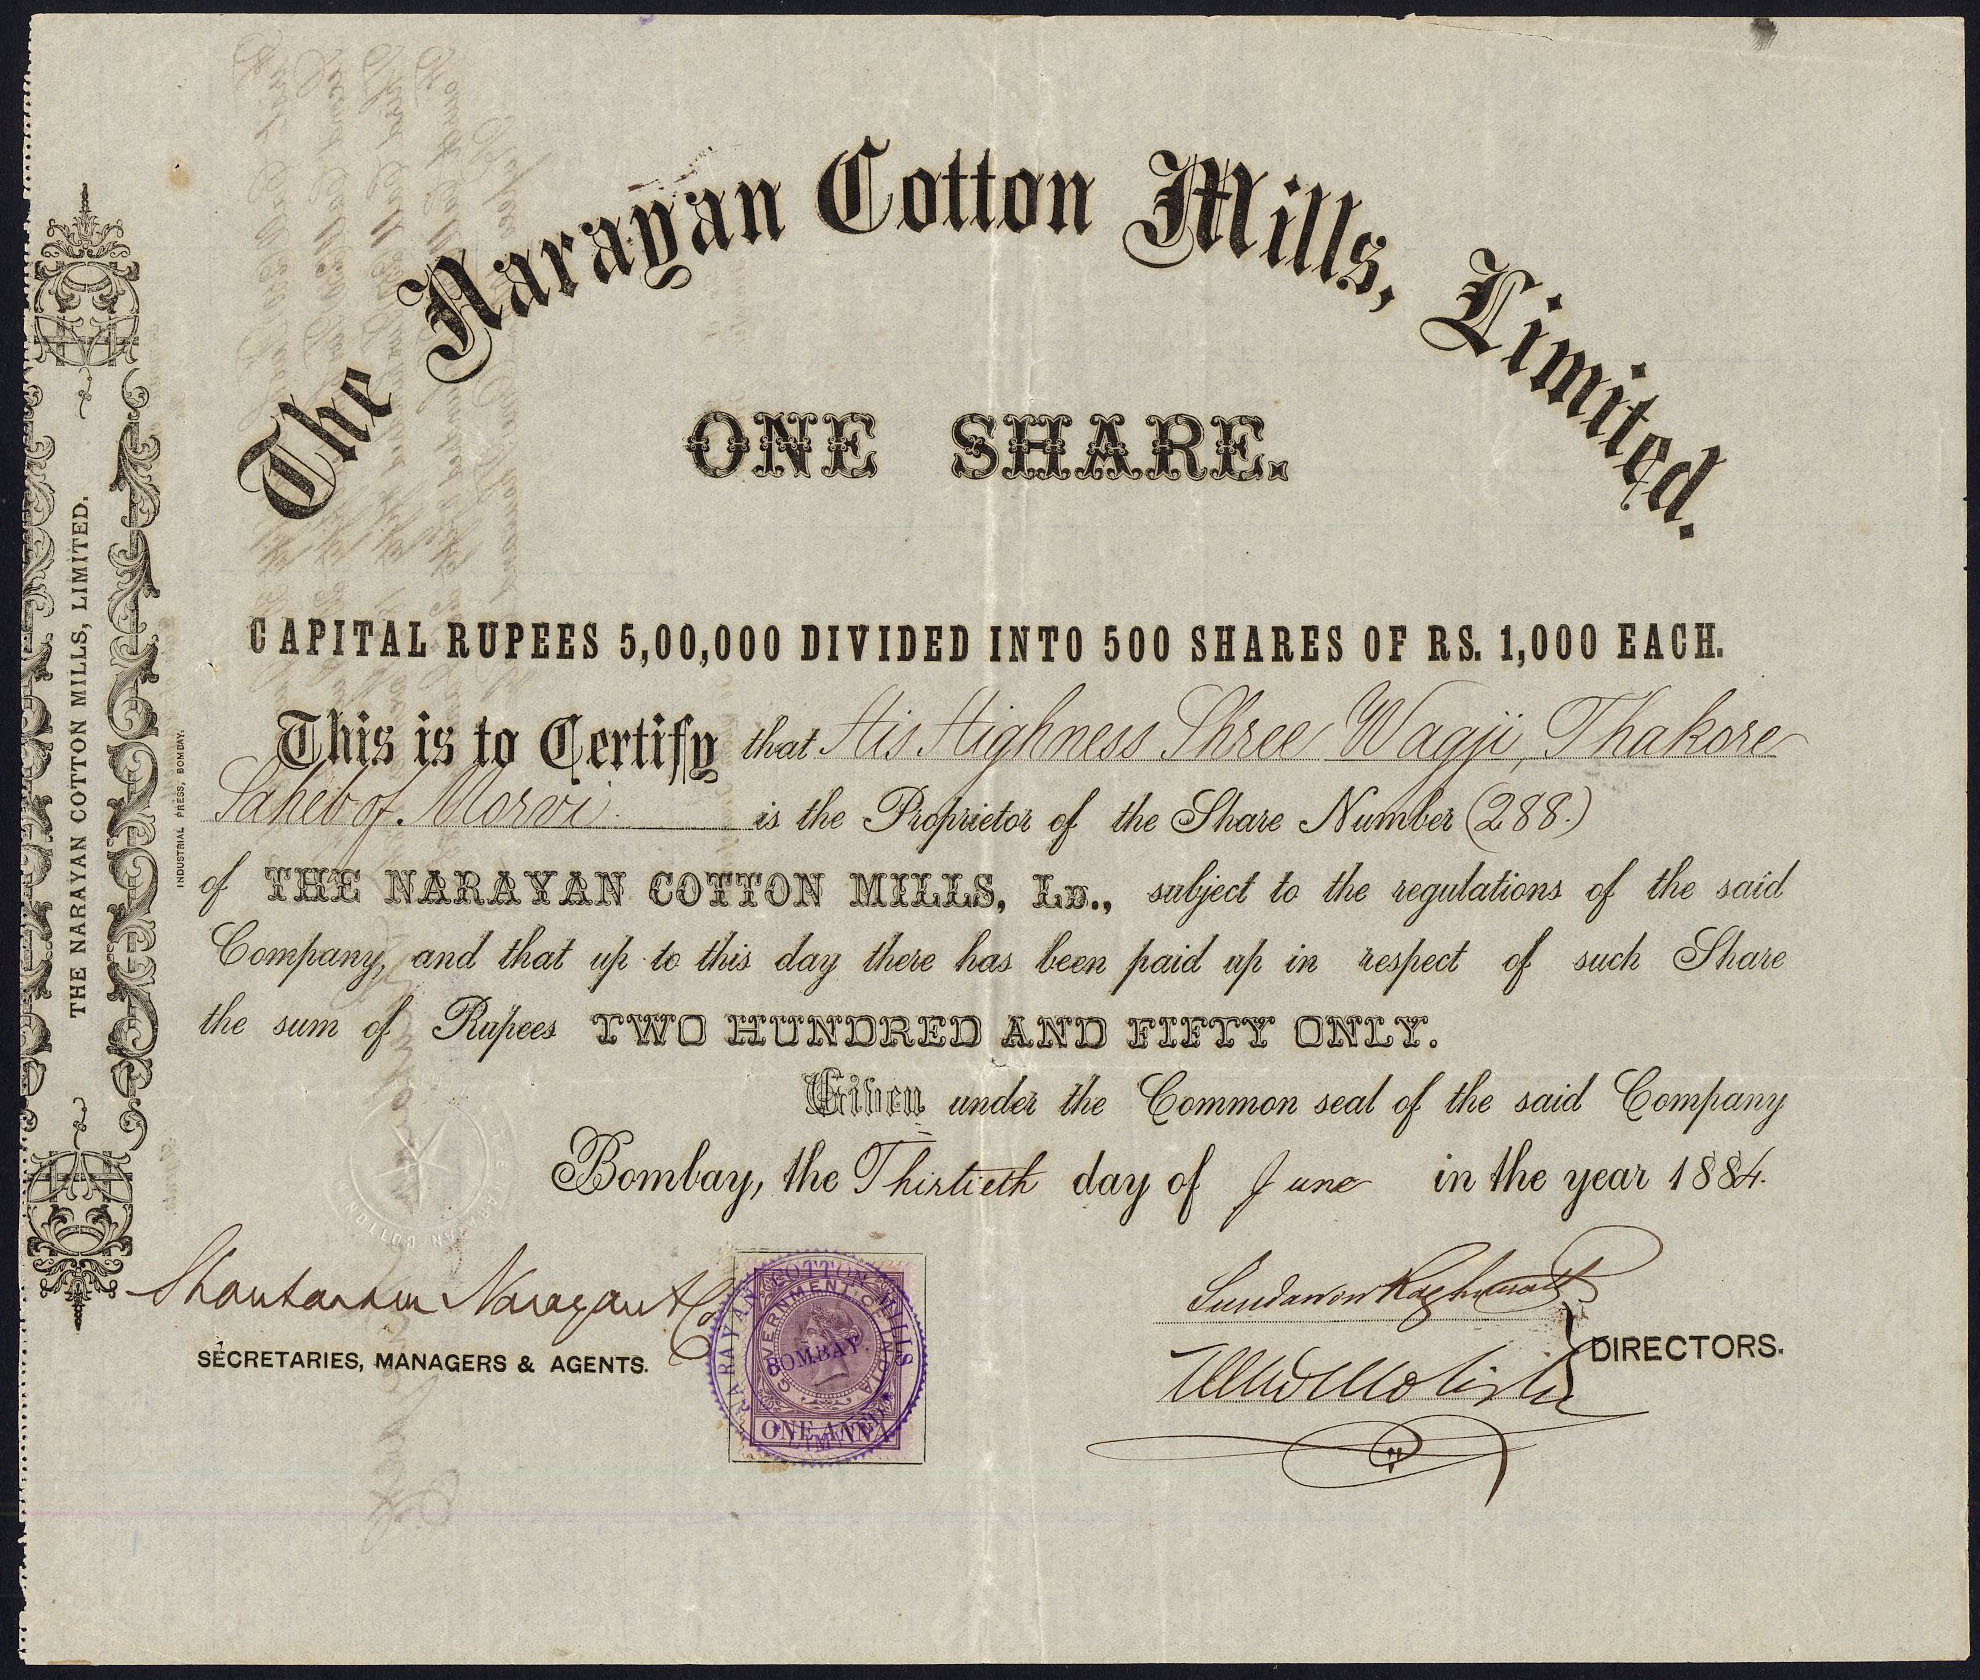 The Narayan Cotton Mills, Limited.
ONE SHARE.
CAPITAL RUPEES 5,00,000 DIVIDED INTO 500 SHARES OF RS. 1,000 EACH.
This is to Certify that His Highness Shree Wagji, Thakore
Saheb of Morvi is the Proprietor of the Share Number (288.)
of THE NARAYAN COTTON MILLS, LD., subject to the regulations of the said
Company, and that up to this day there has been paid up in respect of such Share
the sum of Rupees TWO HUNDRED AND FIFTY ONLY.
Given under the Common seal of the said Company
Bombay, the Thirtieth day of June in the year 1884.
Shantaram Narayan & Co
SECRETARIES, MANAGERS & AGENTS.
NARAYAN COTTON MILLS
LIMITED
BOMBAY.
GOVERNMENT OF INDIA
ONE ANNA
DIRECTORS.
THE NARAYAN COTTON MILLS, LIMITED.
INDUSTRIAL PRESS, BOMBAY.